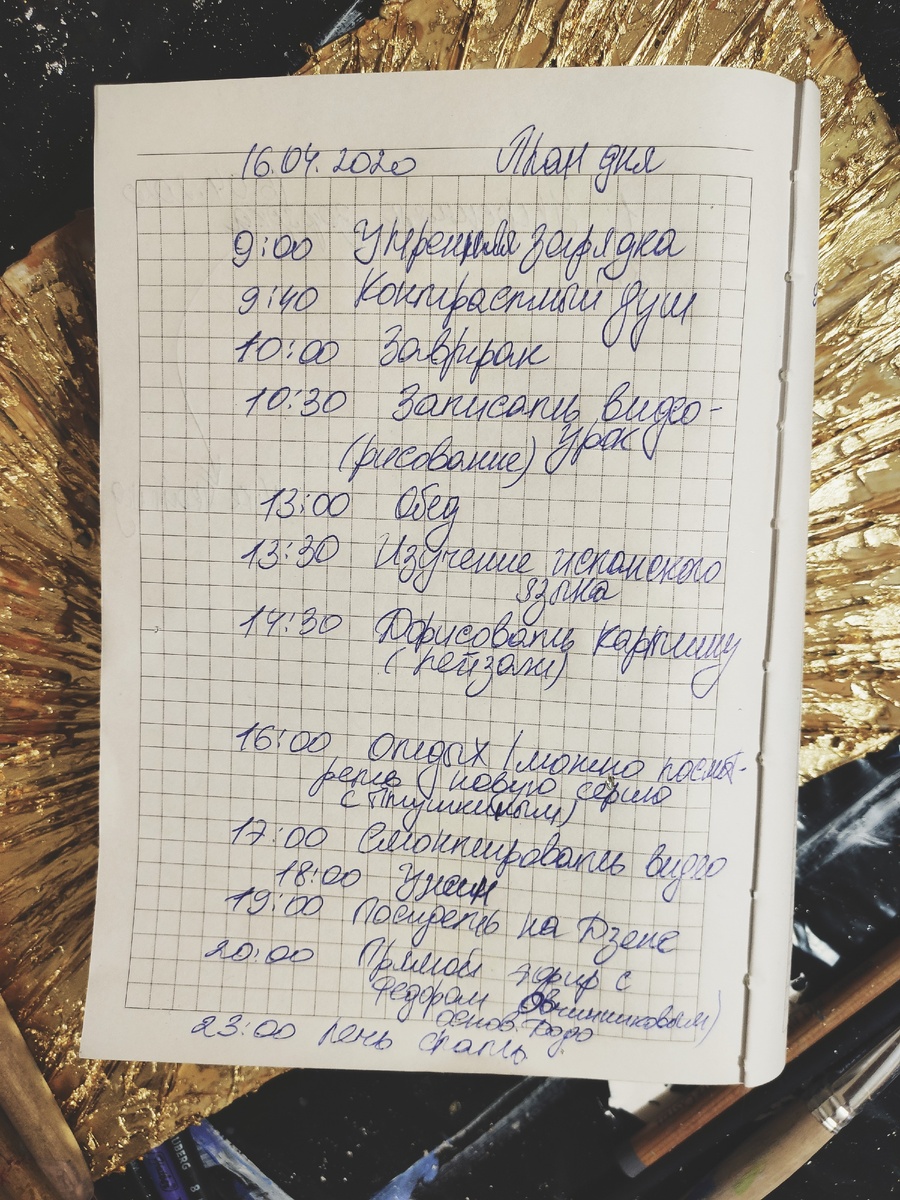 16.04.2020 План дня
9:00 Утренняя зарядка
9:40 Контрастный душ
10:00 Завтрак
10:30 Записать видео-
урок
(рисование)
13:00 Обед
13:30 Изучение испанского
языка
14:30 Дорисовать картину
(пейзаж)
16:00 Отдых (можно посмот-
реть новую серию
с Птушкиным)
17:00 Смонтировать видео
18:00 Ужин
19:00 Посидеть на Дзене
20:00 Прямой эфир с
Федором Овчинниковым)
основ. Додо
23:00 лечь спать